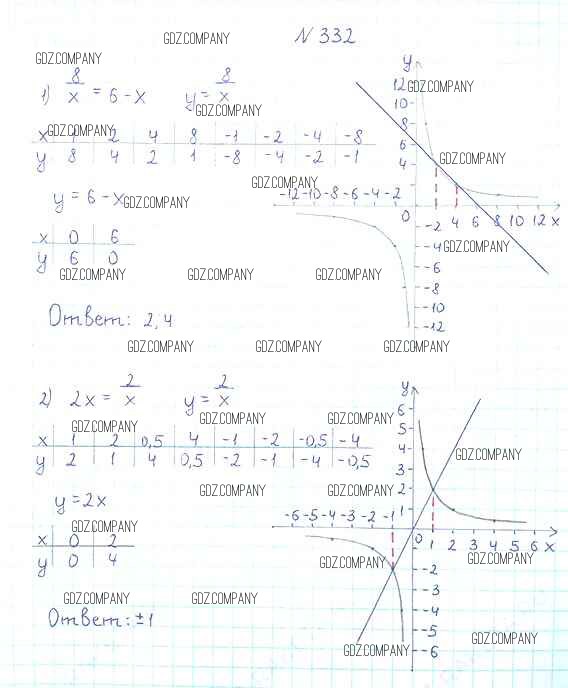 GDZ.COMPANY
N 332
GDZ.COMPANY
1) 8/x = 6 - x   y = 8/x
GDZ.COMPANY
GDZ.COMPANY
GDZ.COMPANY
x 1 2 4 8 -1 -2 -4 -8
y 8 4 2 1 -8 -4 -2 -1
GDZ.COMPANY
y = 6 - x
GDZ.COMPANY
x 0 6
y 6 0
GDZ.COMPANY GDZ.COMPANY GDZ.COMPANY
Ответ: 2; 4
y
12
10
8
6
4
GDZ.COMPANY
-12 -10 -8 -6 -4 -2
0
2 4 6 8 10 12 x
-2
-4
GDZ.COMPANY
-6
-8
-10
-12
GDZ.COMPANY GDZ.COMPANY GDZ.COMPANY
2) 2x = 2/x   y = 2/x
GDZ.COMPANY GDZ.COMPANY GDZ.COMPANY
x 1 2 0,5 4 -1 -2 -0,5 -4
y 2 1 4 0,5 -2 -1 -4 -0,5
GDZ.COMPANY GDZ.COMPANY
y = 2x
GDZ.COMPANY
x 0 2
y 0 4
GDZ.COMPANY GDZ.COMPANY
Ответ: ±1
y
6
5
4
GDZ.COMPANY
3
2
GDZ.COMPANY
1
-6 -5 -4 -3 -2 -1
0
1 2 3 4 5 6 x
GDZ.COMPANY GDZ.COMPANY
-2
-3
-4
-5
GDZ.COMPANY
GDZ.COMPANY
-6